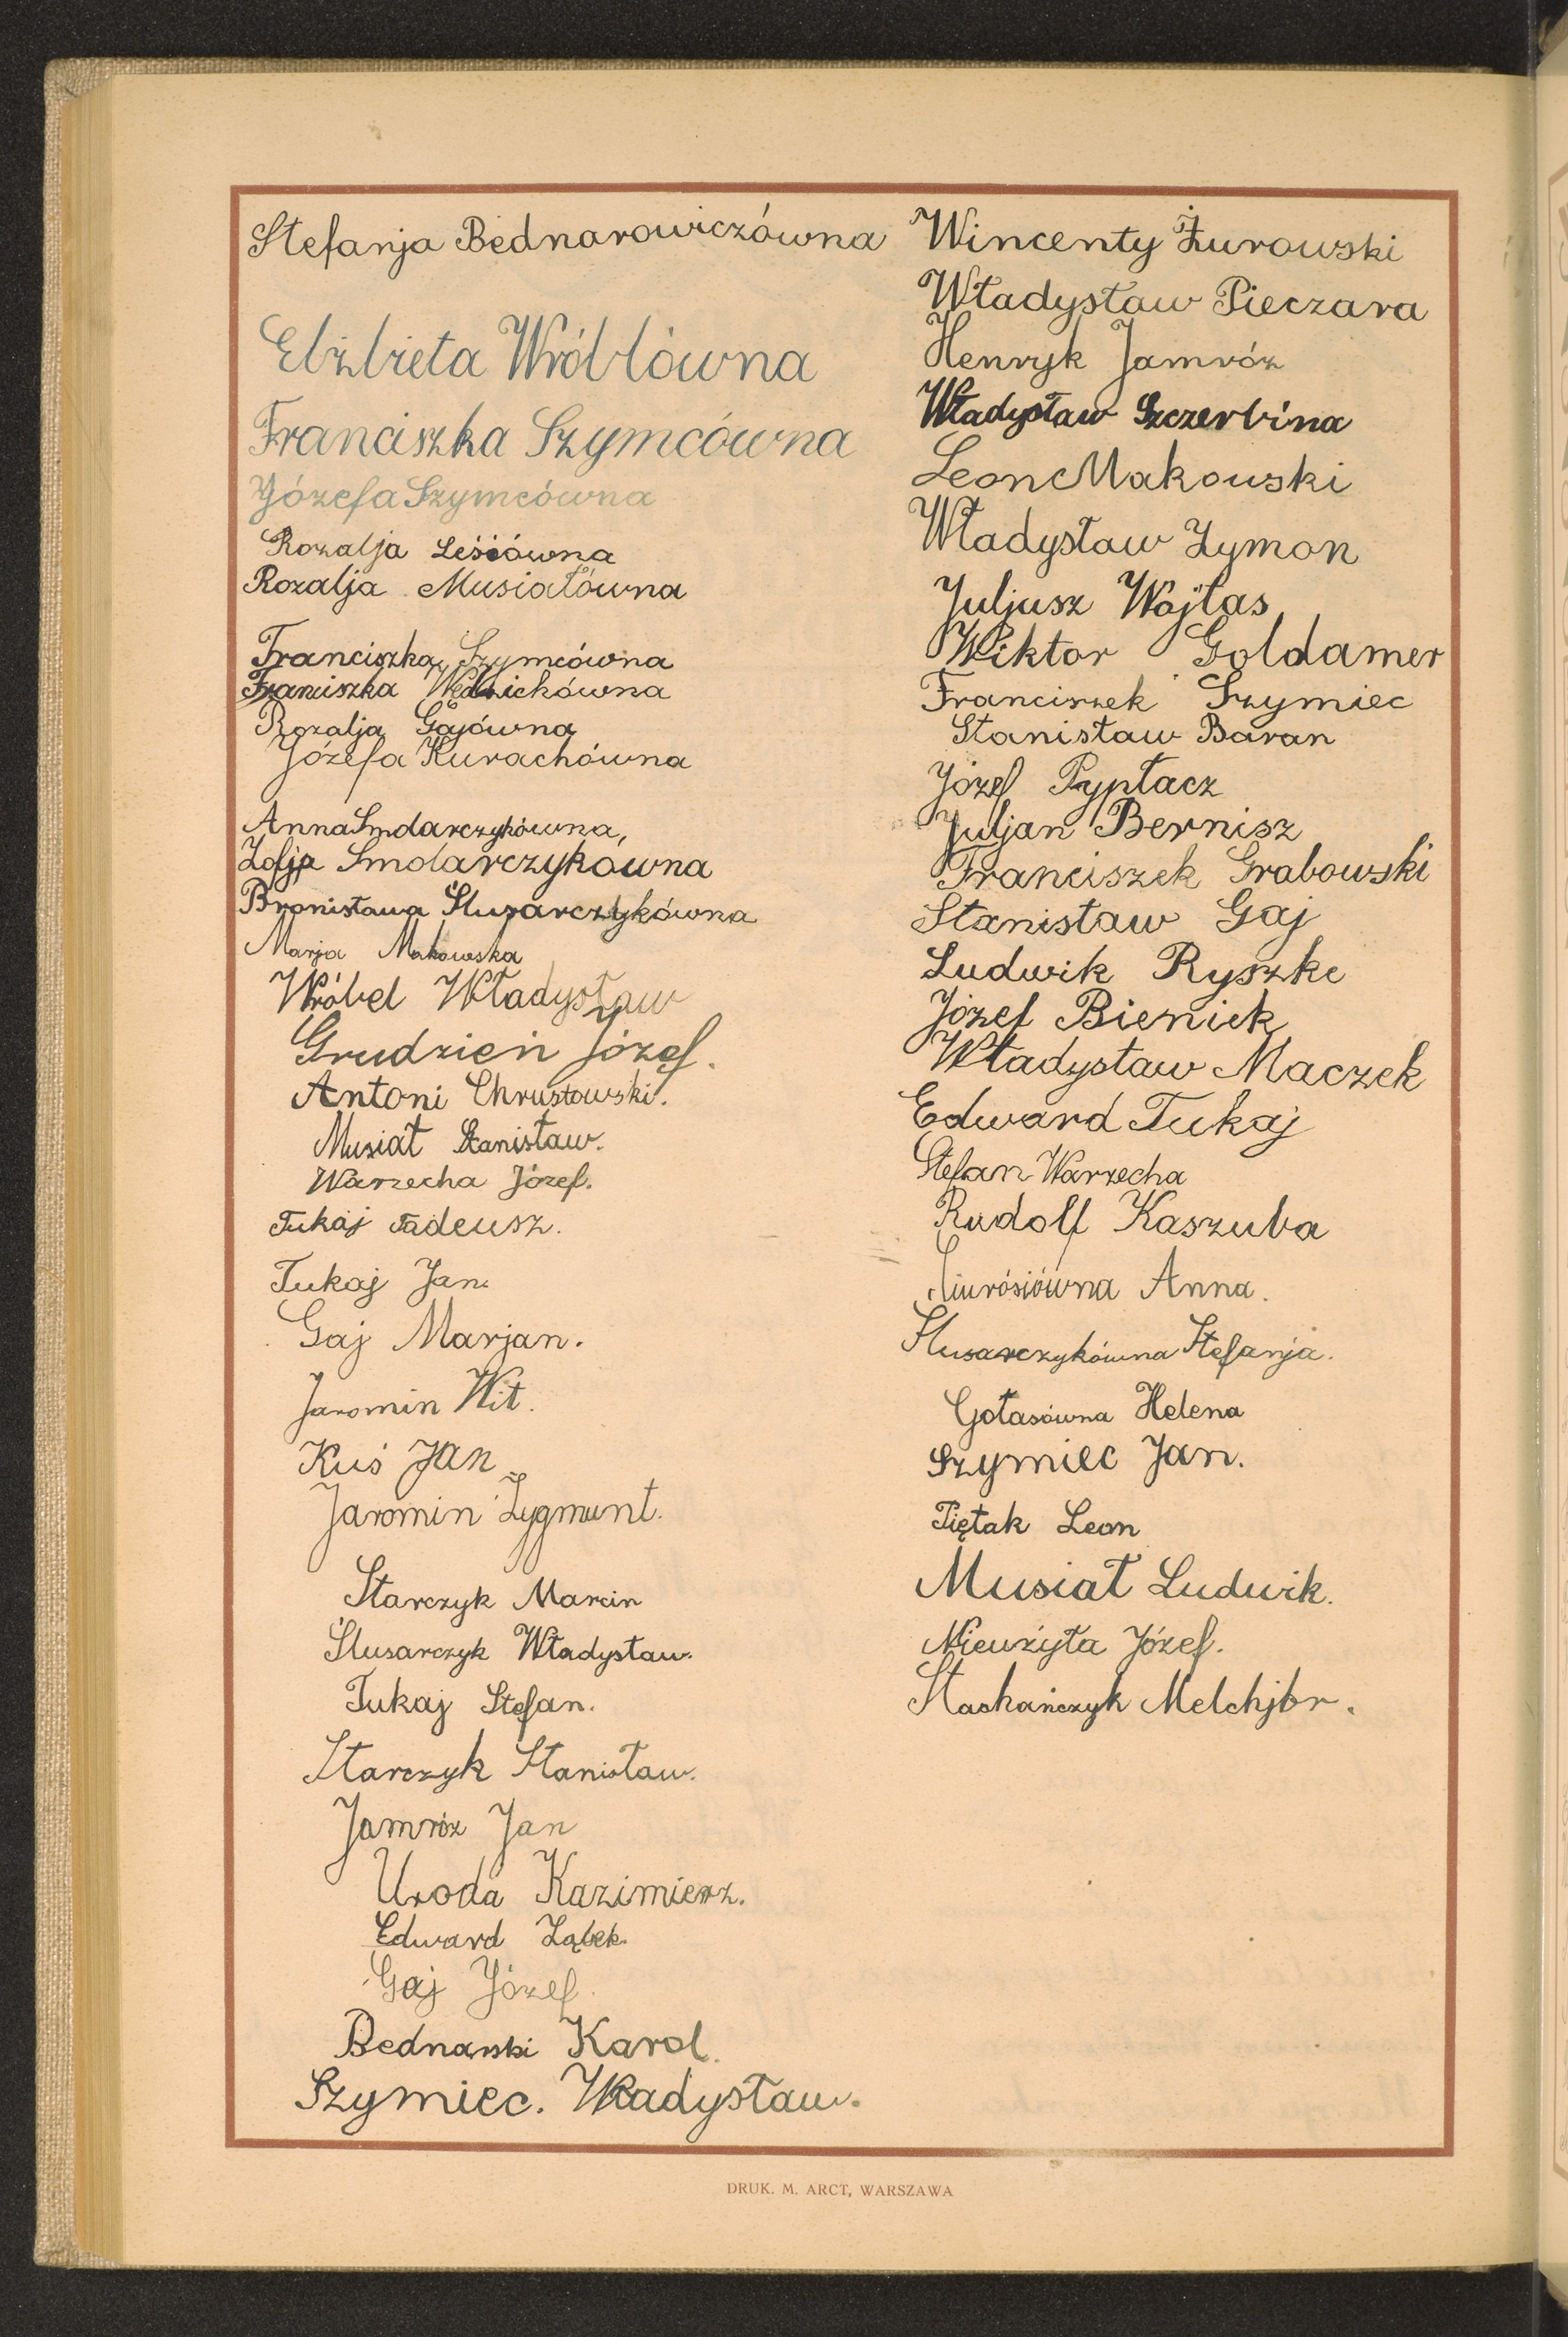 Stefanja Bednarowiczówna
Elżbieta Wróblówna
Franciszka Szymcówna
Józefa Szymcówna
Rozalja Leśiówna
Rozalja Musiałówna
Franciszka Szymcówna
Franciszka
Rozalja Gajówna
Józefa Kurachówna
Anna Smdarczykówna,
Zofja Smolarczykówna
Bronisława Ślusarczykówna
Marja Makowska
Wróbel Władysław
Grudzień Józef.
Antoni Chrustowski.
Musiał Stanisław.
Warzecha Józef.
Tukaj Tadeusz.
Tukaj Jan.
Gaj Marjan.
Jaromin Wit.
Kuś Jan
Jaromin Zygmunt.
Starczyk Marcin
Ślusarczyk Władysław.
Tukaj Stefan.
Starczyk Stanisław.
Jamróz Jan
Uroda Kazimierz.
Edward Ząbek.
Gaj Józef.
Bednarski Karol.
Szymiec. Władysław.
Wincenty Żurowski
Władysław Pieczara
Henryk Jamróz
Władysław Szczerbina
Leon Makowski
Władysław Zymon
Juljusz Wójtas
Wiktor Goldamer
Franciszek Szymiec
Stanisław Baran
Józef Pyptacz
Juljan Bernisz
Franciszek Grabowski
Stanisław Gaj
Ludwik Ryszke
Józef Bieniek
Władysław Maczek
Edward Tukaj
Stefan Warzecha
Rudolf Kaszuba
Anna.
Ślusarczykówna Stefanja.
Gołasówna Helena
Szymiec Jan.
Piętak Leon
Musiał Ludwik.
Nieużyła Józef.
Stachańczyk Melchjor.
DRUK. M. ARCT, WARSZAWA